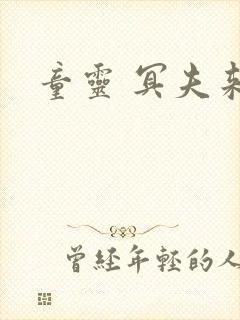 童靈 冥夫
曾經年輕的人